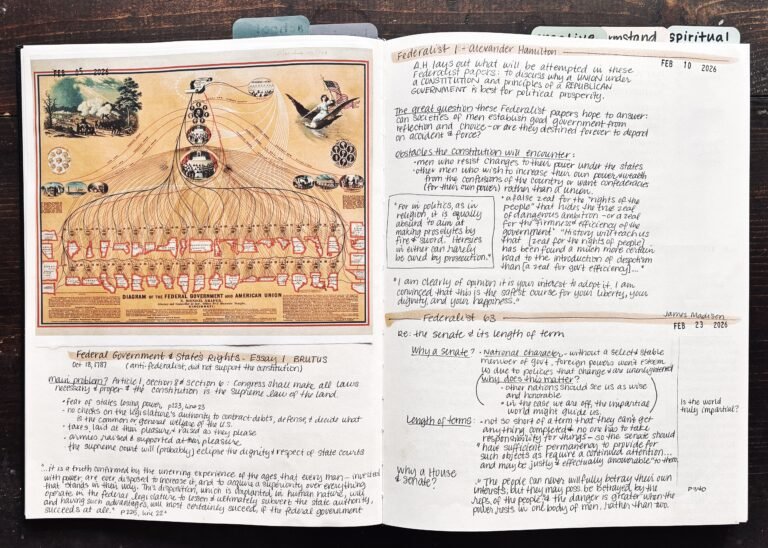 creative
mstand
spiritual
FEB 05 2026
DIAGRAM OF THE FEDERAL GOVERNMENT AND AMERICAN UNION
Federal Government & State's Rights - Essay 1 BRUTUS
Oct 18, 1787 (anti-federalist, did not support the constitution)
Main problem? Article 1, Section 8 & Section 6: Congress shall make all laws
necessary & proper & the constitution is the supreme law of the land.
• fear of states losing power, p223, line 23
• no checks on the legislature's authority to contract debts, defense, & decide what
is the common or general welfare of the U.S.
• taxes laid at their pleasure & raised as they please
• armies raised & supported at their pleasure.
• the supreme court will (probably) eclipse the dignity & respect of state courts
"...it is a truth confirmed by the unerring experience of the ages that every man - invested
with power are ever disposed to increase it, and to acquire a superiority over everything
that stands in their way. This disposition, which is implanted in human nature, will
operate in the federal legislature to lessen & ultimately subvert the state authority,
and having such advantages, will most certainly succeed, if the federal government
succeeds at all." p225, line 22
Federalist 1 - Alexander Hamilton
FEB 10 2026
A.H lays out what will be attempted in these
Federalist papers: to discuss why a UNION under
a CONSTITUTION and principles of a REPUBLICAN
GOVERNMENT is best for political prosperity.
The great question these Federalist papers hope to answer:
can societies of men establish good government from
reflection and choice - or are they destined forever to depend
on accident & force?
Obstacles the constitution will encounter:
• men who resist changes to their power under the states
• other men who wish to increase their own power & wealth
from the confusions of the country or want confederacies
(for their own power) rather than a union.
"For in politics, as in
religion, it is equally
absurd to aim at
making proselytes by
fire & sword. Heresies
in either can rarely
be cured by prosecution."
• a false zeal for the "rights of the
people" that hides the true zeal
of dangerous ambition - or a zeal
for the "firmness & efficiency of the
government" "History will teach us
that (zeal for the rights of people)
has been found a much more certain
road to the introduction of despotism
than (a zeal for gov't efficiency)..."
"I am clearly of opinion it is your interest to adopt it. I am
convinced that this is the safest course for your liberty, your
dignity, and your happiness."
Federalist 63
James Madison
FEB 23 2026
Re: the senate & its length of term
Why a Senate?
• National character - without a select & stable
member of govt, foreign powers won't esteem
us due to policies that change & are unenlightened
why does this matter?
• other nations should see us as wise
and honorable
• in the case we are off, the impartial
world might guide us.
Is the world
truly impartial?
Length of terms:
• not so short of a term that they can't get
anything completed & no one has to take
responsibility for things - so the senate should
"have sufficient permanency to provide for
such objects as require a continued attention...
and may be justly & effectually answerable" to them,
Why a House
& Senate?
"The people can never willfully betray their own
interests, but they may poss. be betrayed by the
reps. of the people & the danger is greater when the
power rests in one body of men, rather than two.
p340